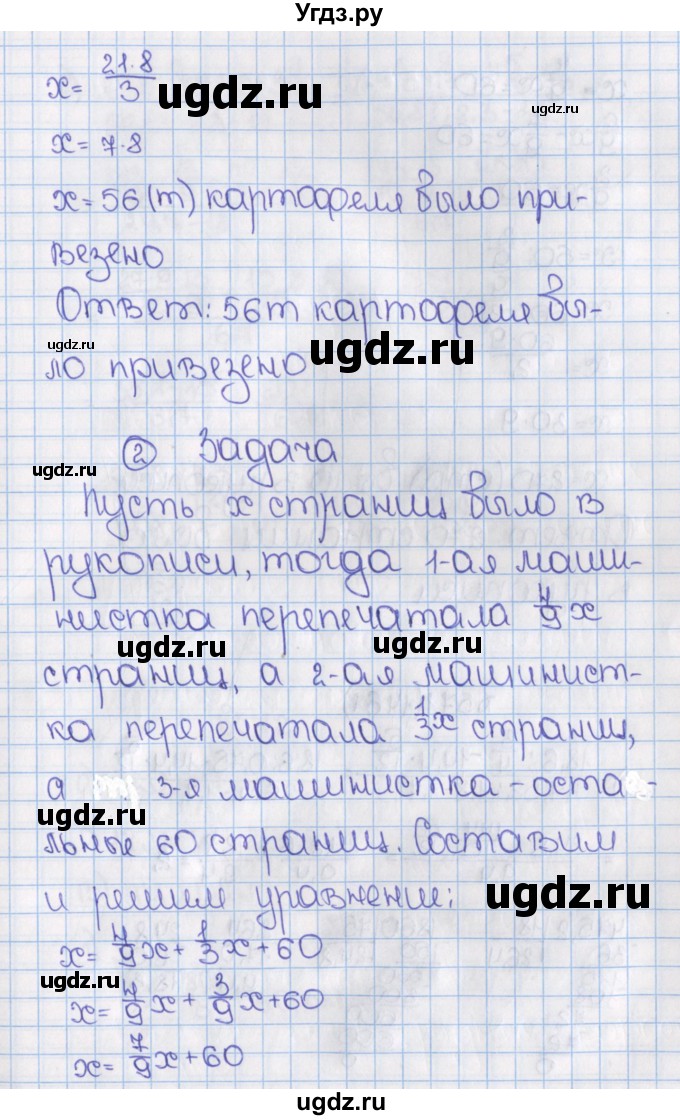 Угдз.ру
x = 21·8/3
ugdz.ru
ugdz.ru
x = 7·8
x = 56 (т) картофеля было при-
везено
Ответ: 56 т картофеля бы-
ugdz.ru
ugdz.ru
ло привезено
② Задача
ugdz.ru
Пусть x страниц было в
рукописи, тогда 1-ая маши-
нистка перепечатала 4/9 x
ugdz.ru
ugdz.ru
страниц, а 2-ая машинист-
ка перепечатала 1/3 x страниц,
а 3-я машинистка - оста-
ugdz.ru
льные 60 страниц. Составим
и решим уравнение:
ugdz.ru
x = 4/9 x + 1/3 x + 60
ugdz.ru
x = 4/9 x + 3/9 x + 60
x = 7/9 x + 60
ugdz.ru